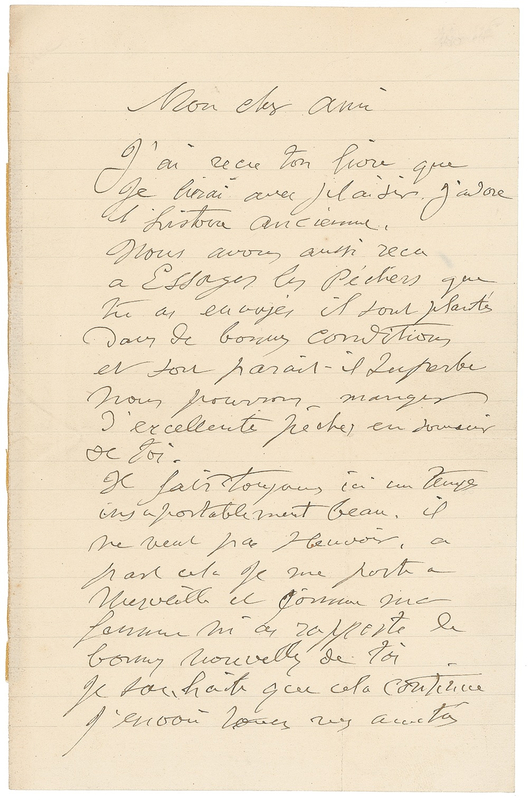 Mon cher ami
J'ai recu ton livre que
Je lirai avec plaisir, j'adore
l'histoire ancienne.
Nous avons aussi recu
a Essoyes les Pêchers que
tu as envoyés il sont plantés
dans de bonnes conditions
et sont parait-il Superbe
nous pourrons manger
d'excellente pêches en souvenir
de toi.
Il fait toujours ici un temps
insuportablement beau. il
ne veut pas pleuvoir, a
part cela Je me porte a
Merveille et comme ma
femme m'as rapporté de
bonnes nouvelles de toi
Je souhaite que cela continue
J'envoie mes amitiés